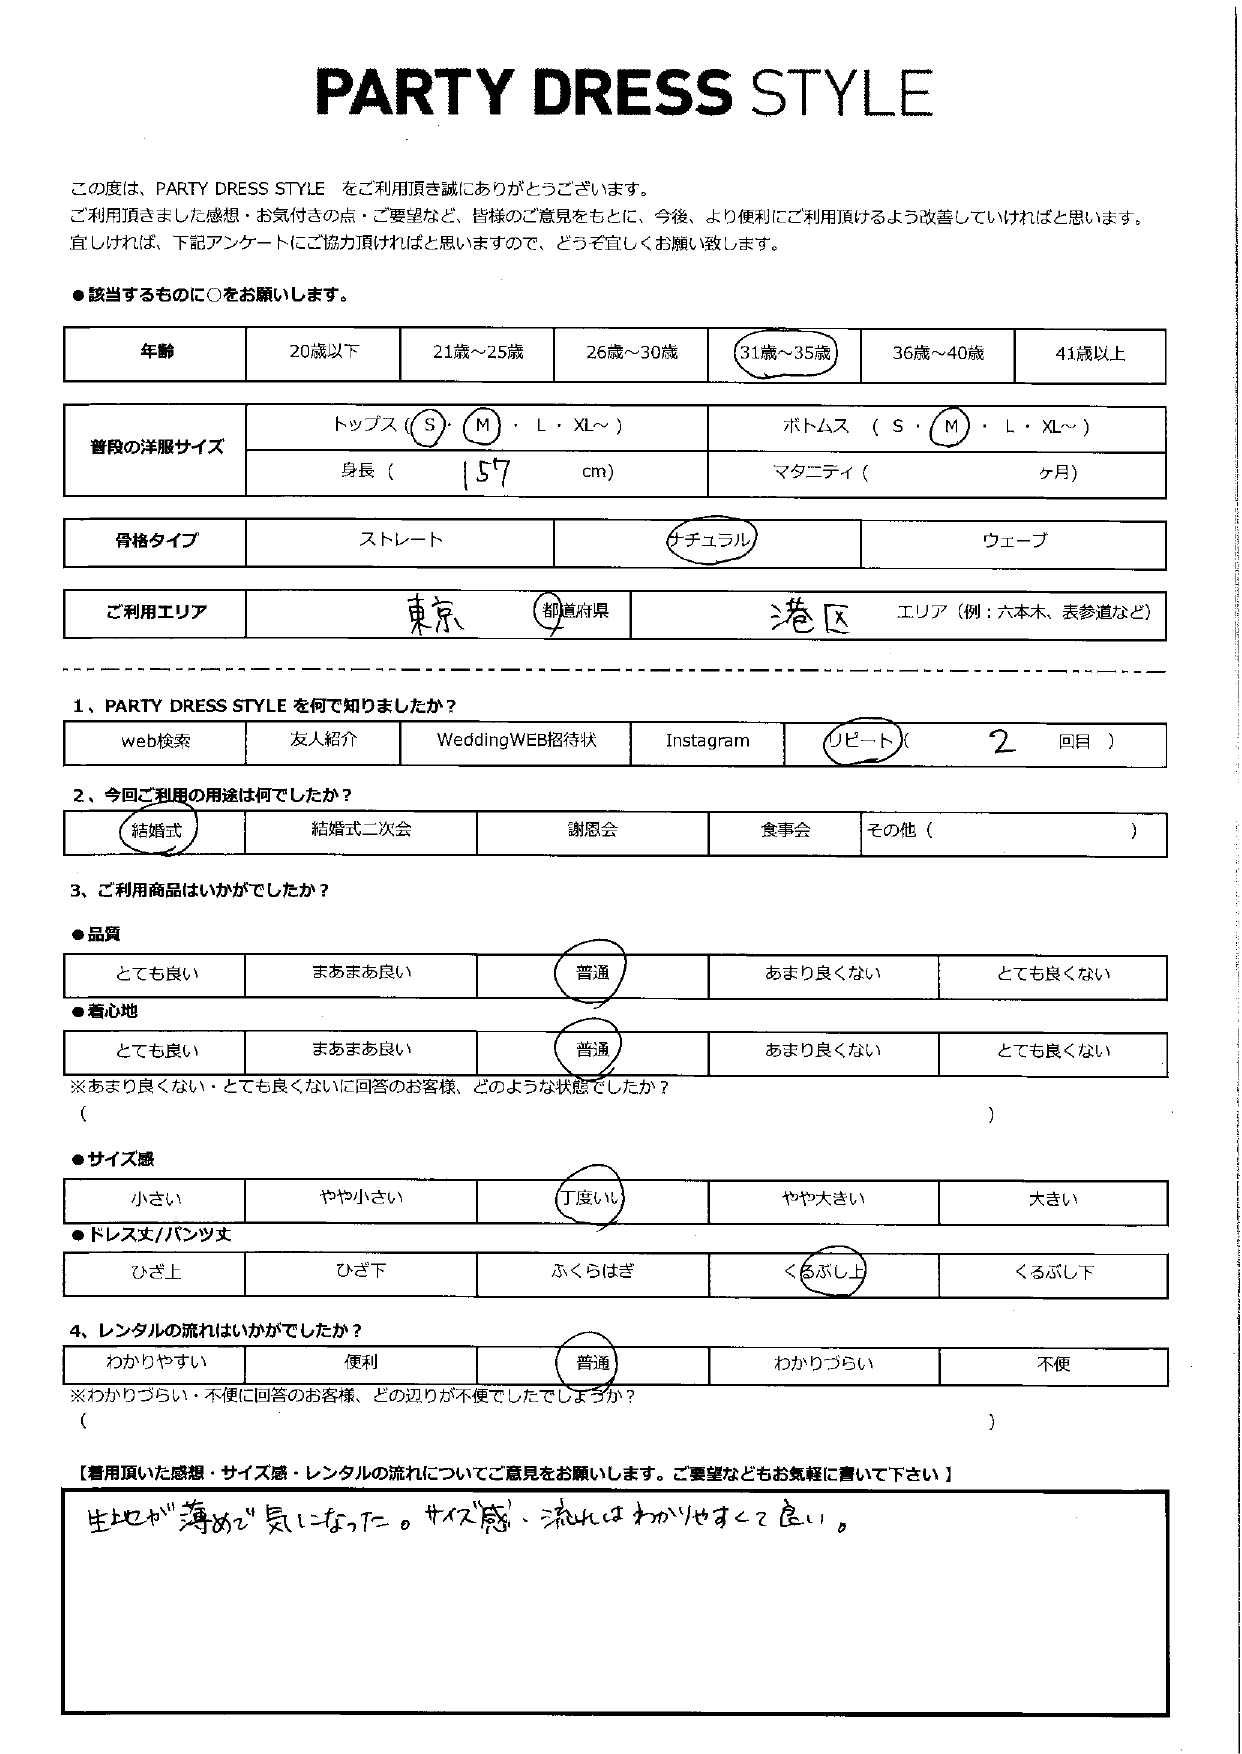 PARTY DRESS STYLE
この度は、PARTY DRESS STYLE をご利用頂き誠にありがとうございます。
ご利用頂きました感想・お気付きの点・ご要望など、皆様のご意見をもとに、今後、より便利にご利用頂けるよう改善していければと思います。
宜しければ、下記アンケートにご協力頂ければと思いますので、どうぞ宜しくお願い致します。
●該当するものに○をお願いします。
年齢 20歳以下 21歳～25歳 26歳～30歳 31歳～35歳 36歳～40歳 41歳以上
普段の洋服サイズ トップス ( S ・ M ・ L ・ XL～ ) ボトムス ( S ・ M ・ L ・ XL～ )
身長 ( 157 cm) マタニティ ( ヶ月)
骨格タイプ ストレート ナチュラル ウェーブ
ご利用エリア 東京 都道府県 港区 エリア（例：六本木、表参道など）
1、PARTY DRESS STYLE を何で知りましたか？
web検索 友人紹介 WeddingWEB招待状 Instagram リピート ( 2 回目 )
2、今回ご利用の用途は何でしたか？
結婚式 結婚式二次会 謝恩会 食事会 その他 ( )
3、ご利用商品はいかがでしたか？
●品質
とても良い まあまあ良い 普通 あまり良くない とても良くない
●着心地
とても良い まあまあ良い 普通 あまり良くない とても良くない
※あまり良くない・とても良くないに回答のお客様、どのような状態でしたか？
( )
●サイズ感
小さい やや小さい 丁度いい やや大きい 大きい
●ドレス丈/パンツ丈
ひざ上 ひざ下 ふくらはぎ くるぶし上 くるぶし下
4、レンタルの流れはいかがでしたか？
わかりやすい 便利 普通 わかりづらい 不便
※わかりづらい・不便に回答のお客様、どの辺りが不便でしたでしょうか？
( )
【着用頂いた感想・サイズ感・レンタルの流れについてご意見をお願いします。ご要望などもお気軽に書いて下さい 】
生地が薄めで気になった。サイズ感、流れはわかりやすくて良い。